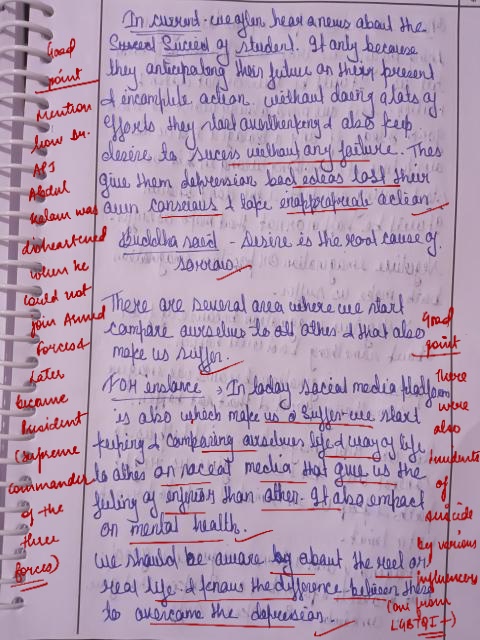 In current we often hear a news about the
Suceed Suceed of student. It only because
they anticipatang their future on their present
& encomplete action. without doing a lots of
efforts they start overthenking & also keep
desire to sucess without any failure. Thes
give them depression bad edeas lost their
own conscious & take enappropreate action.
Buddha said - Desire is the root cause of
sorrow.
There are several area where we start
compare ourselves to all other & that also
make us suffer.
FOR enstance, In today soceal media platform
is also which make us suffer we start
comparing ourselves life & way of life
to other on soceal media that give us the
feeling of enferior than other. It also empact
on mental health.
we should be aware about the reel or
real life & know the difference between there
to overcome the depression.
Good
point
Mention
how Dr.
APJ
Abdul
Kalam was
disheartened
when he
could not
join Armed
forces &
later
became
President
(supreme
commander
of the
three
forces)
Good
point
There
were
also
Incidents
of
suicide
by various
influencers
(one from
LGBTQI+)